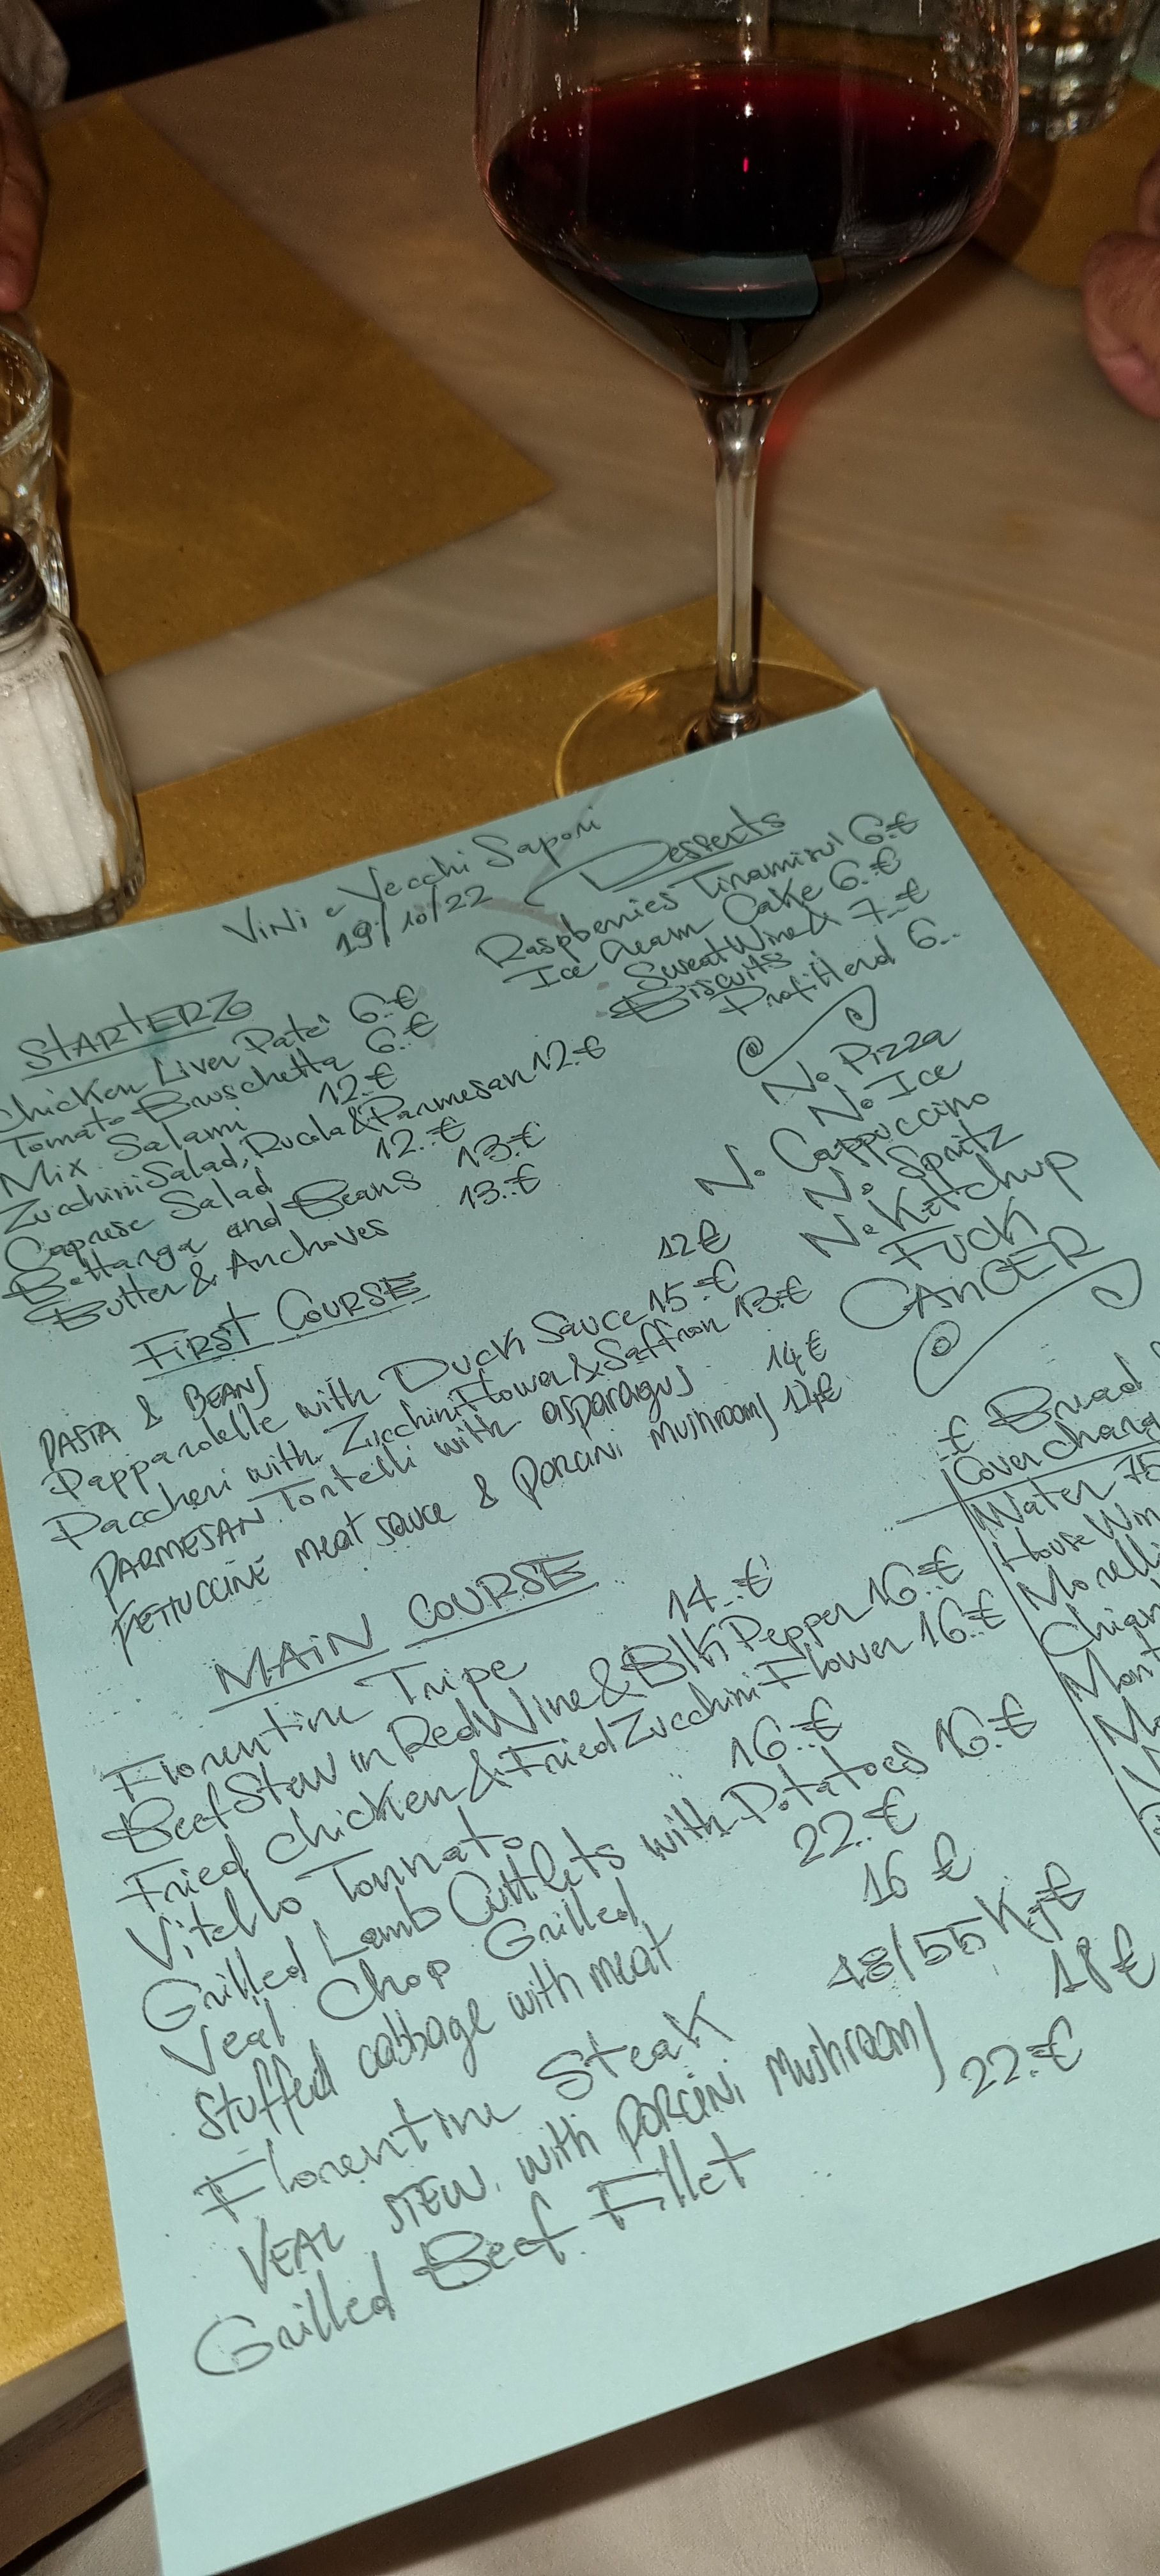 ViNi e Vecchi Sapori
19/10/22
Desserts
Raspberries Tiramisu! 6.€
Ice Cream Cake 6.€
Sweat Wine & 7..€
Biscuits
Profitterol 6..
STARTERZ
Chicken Liver Paté 6.€
Tomato Bruschetta 6..€
Mix Salami 12.€
Zucchini Salad, Rucola & Parmesan 12.€
Caprese Salad 12..€
Bottarga and Beans 13.€
Butter & Anchoves 13..€
No Pizza
No Ice
No Cappuccino
No Spritz
No Ketchup
FUCK
CANCER
FIRST COURSE
PASTA & BEANS 12€
Pappardelle with Duck Sauce 15.€
Paccheri with Zucchini Flower & Saffron 13.€
PARMESAN Tortelli with asparagus 14€
FETTUCCINE meat sauce & PORCINI MUSHROOMS 14€
MAiN COURSE
Florentine Tripe 14..€
Beef Stew in Red Wine & Blk Pepper 16.€
Fried chicken & Fried Zucchini Flower 16.€
Vitello Tonnato 16..€
Grilled Lamb Cuttlets with Potatoes 16.€
Veal Chop Grilled 22..€
Stuffed cabbage with meat 16 €
Florentine Steak 48/55 Kg€
VEAL STEW with PORCINI MUSHROOMS 18€
Grilled Beef Fillet 22.€
€ Bread
Cover Charg
Water 75
House Win
Morelli
Chian
Mont